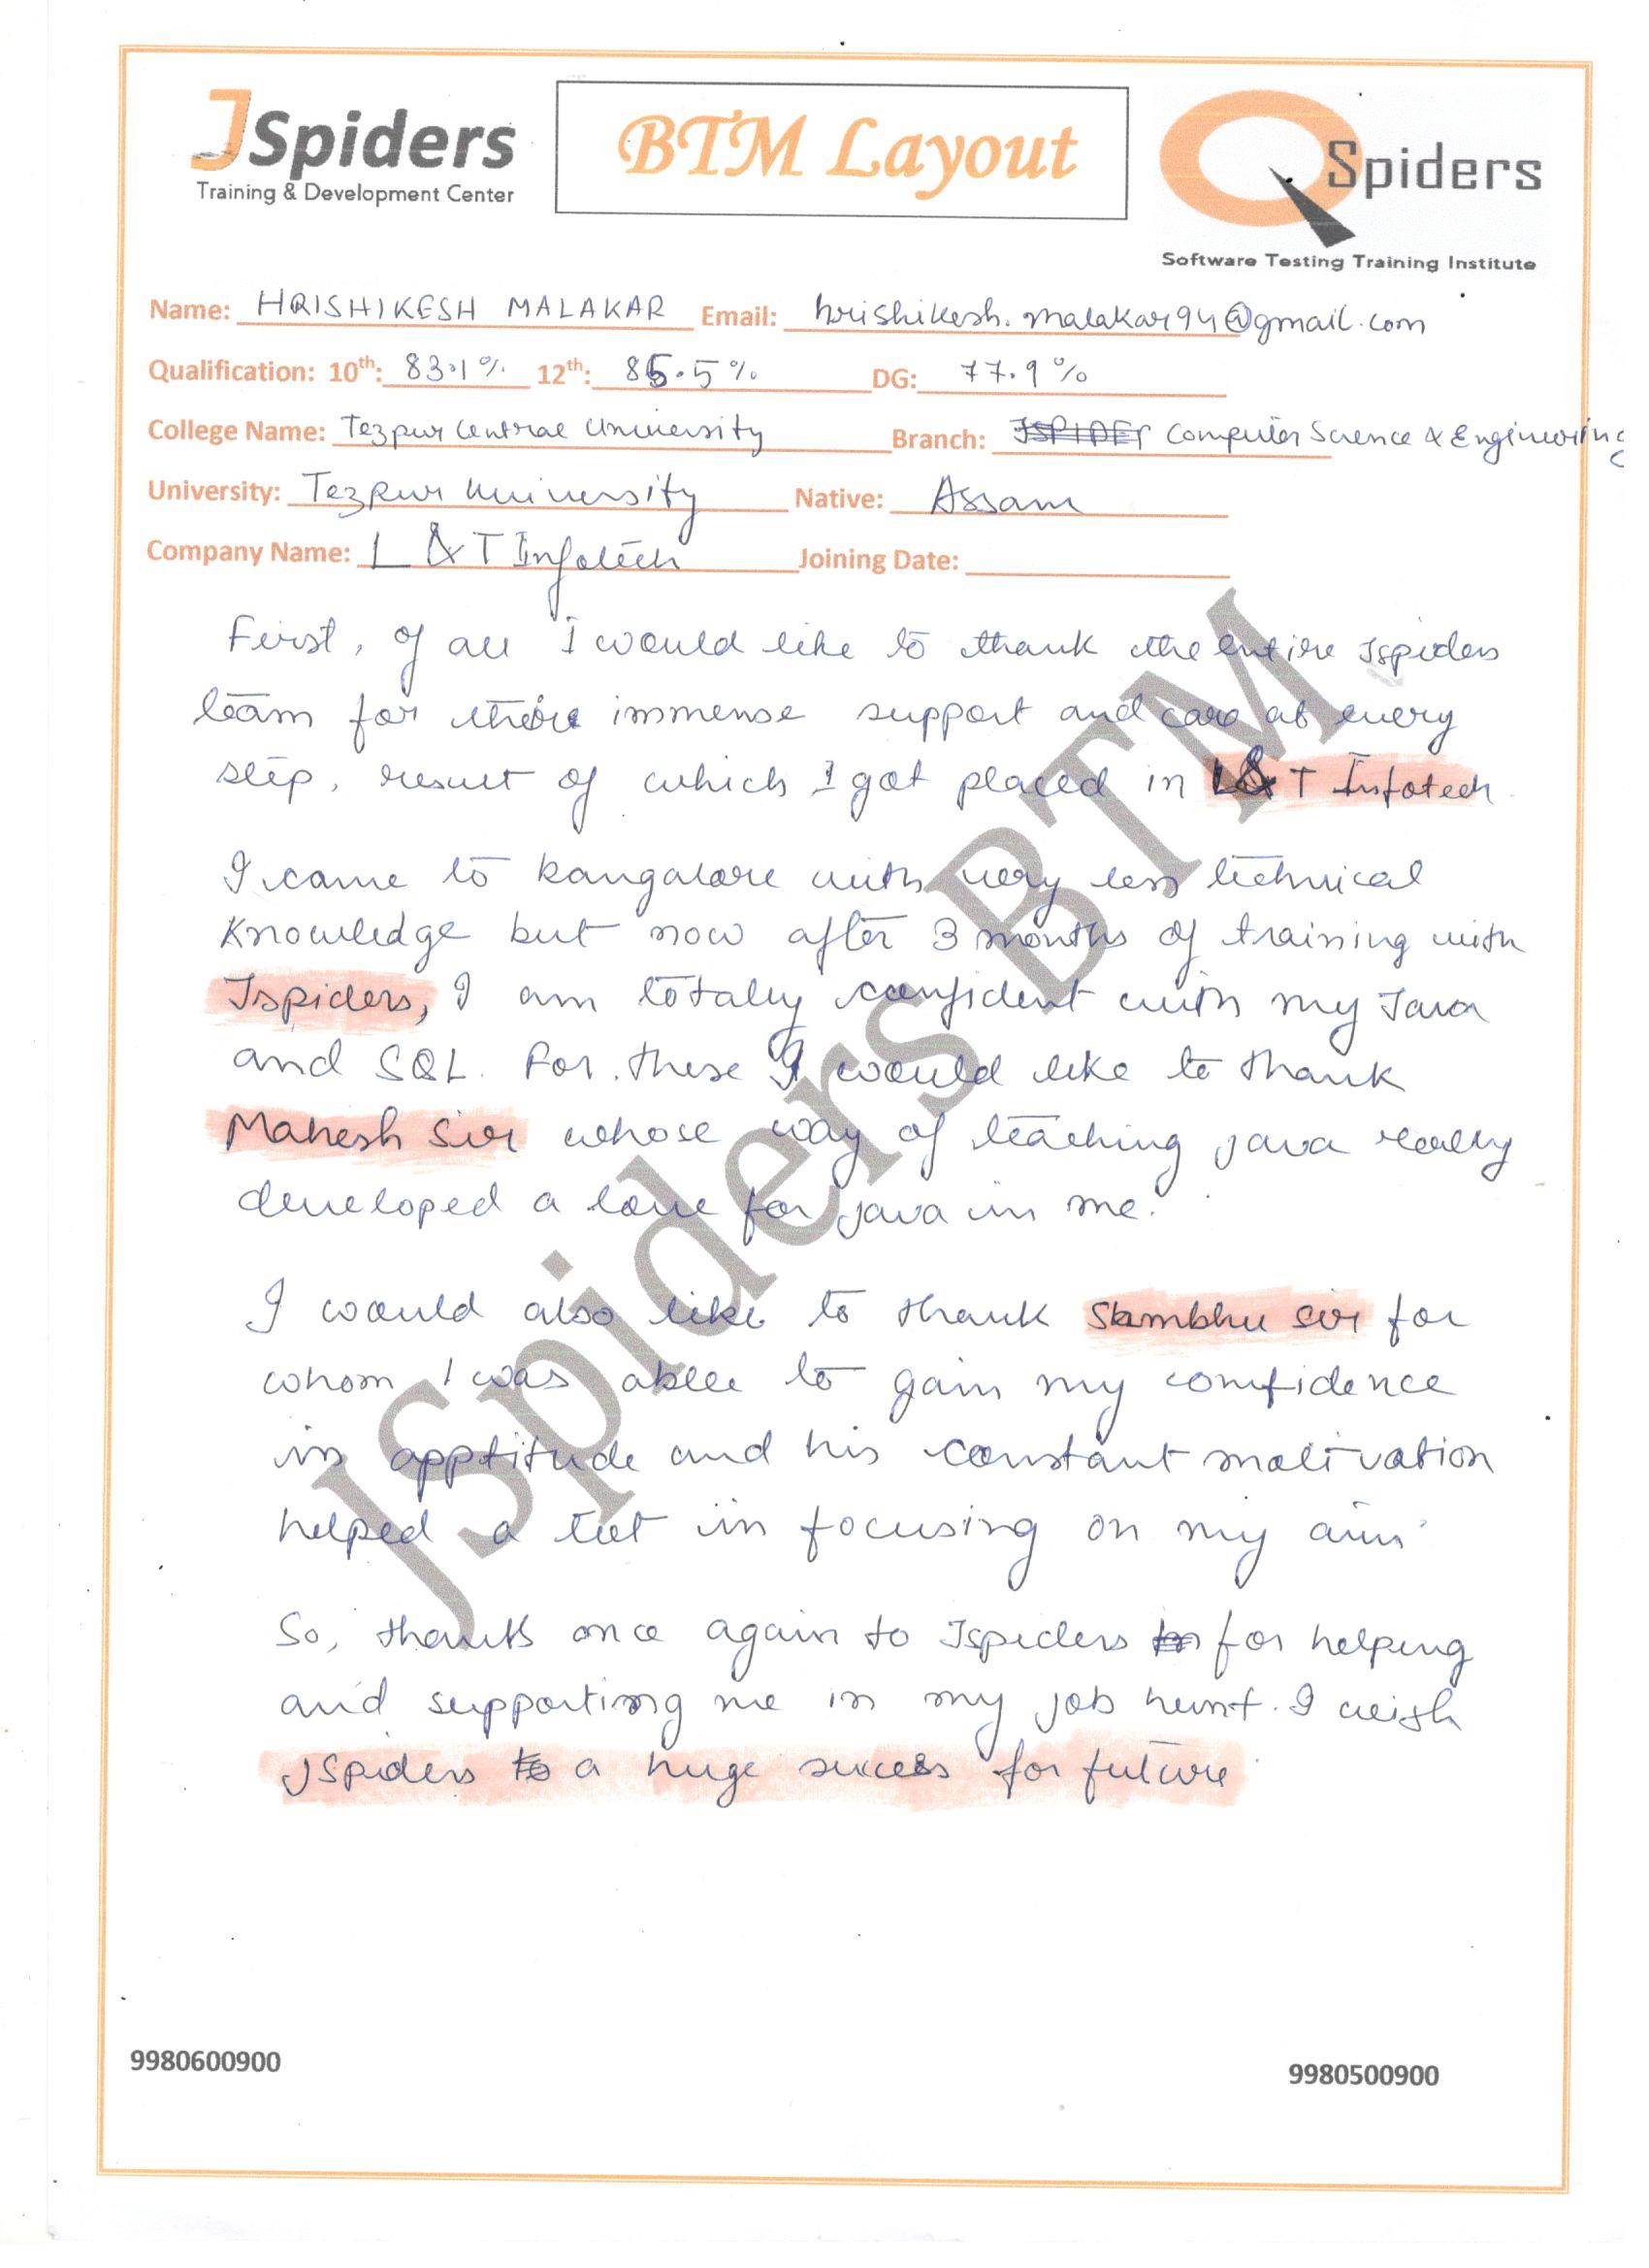 JSpiders
Training & Development Center
BTM Layout
QSpiders
Software Testing Training Institute
Name: HRISHIKESH MALAKAR Email: hrishikesh.malakar94@gmail.com
Qualification: 10th: 83.1% 12th: 85.5% DG: 77.9%
College Name: Tezpur Central University Branch: JSPIDER Computer Science & Engineering
University: Tezpur University Native: Assam
Company Name: L &T Infotech Joining Date:
First, of all I would like to thank the entire Jspiders
team for their immense support and care at every
step, result of which I got placed in L&T Infotech.
I came to bangalore with very less technical
Knowledge but now after 3 months of training with
Jspiders, I am totally confident with my Java
and SQL. For these I would like to thank
Mahesh Sir whose way of teaching java really
developed a love for java in me.
I would also like to thank Shambhu sir for
whom I was able to gain my confidence
in apptitude and his constant motivation
helped a lot in focusing on my aim.
So, thanks once again to Jspiders for helping
and supporting me in my job hunt. I wish
JSpiders to a huge success for future.
JSpiders BTM
9980600900
9980500900